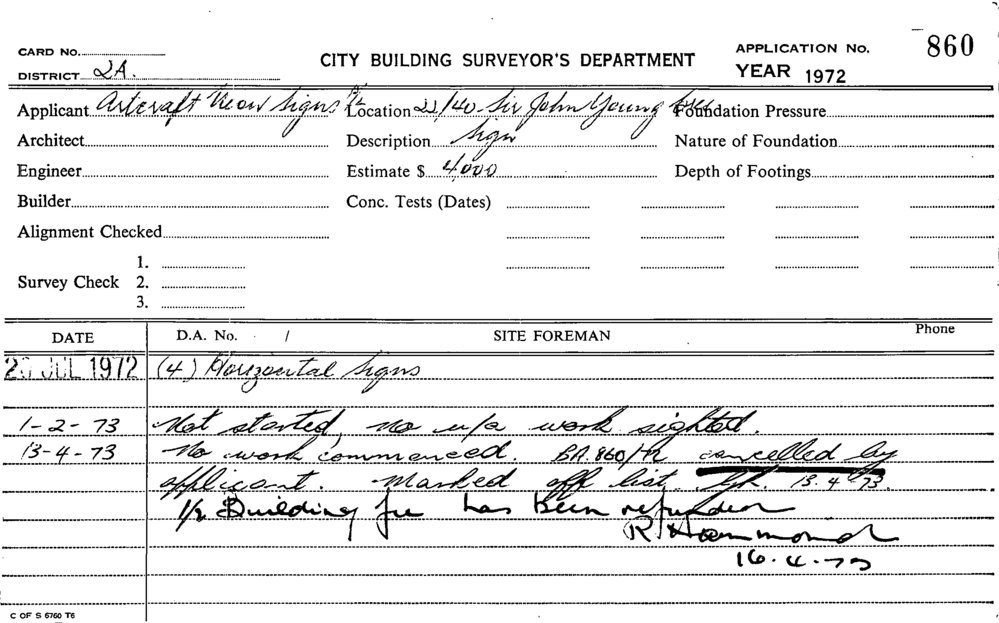 CARD No.
CITY BUILDING SURVEYOR'S DEPARTMENT
APPLICATION No. 860
DISTRICT 2A.
YEAR 1972
Applicant Artcraft Neon Signs P/L Location 22/40 Sir John Young Cres Foundation Pressure
Architect Description Sign Nature of Foundation
Engineer Estimate $ 4,000 Depth of Footings
Builder Conc. Tests (Dates)
Alignment Checked
1.
Survey Check 2.
3.
DATE D.A. No. / SITE FOREMAN Phone
JUL 1972 (4) Horizontal Signs
1-2-73 Not started, no u/a work sighted.
13-4-73 No work commenced. BA.860/72 cancelled by
applicant. Marked off list. 13.4.73.
1/2 Building fee has been refunded
R Hammond
16.4.73
C OF S 6760 T6